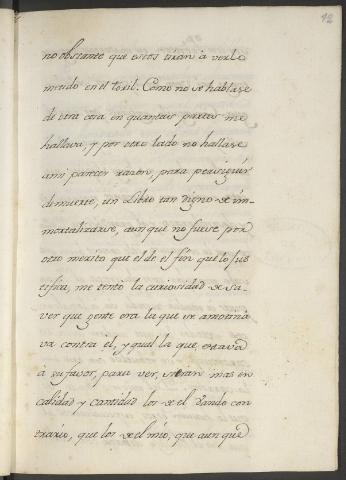 12
no obstante que estos tiran à verle
metido en el toril. Como no se hablase
de otra cosa en quantas partes me
hallava, y por otro lado no hallase
a mi parecer razon, para perseguir
de muerte, un Libro tan digno de im-
mortalizarse, aunque no fuese por
otro merito que el de el fin que lo jus
tifica, me tentò la curiosidad de sa-
ver que gente era la que se amotina
va contra èl, y qual la que estava
à su favor, para ver, si eran mas en
calidad y cantidad los de el Vando con
trario, que los de el mio, que aunque